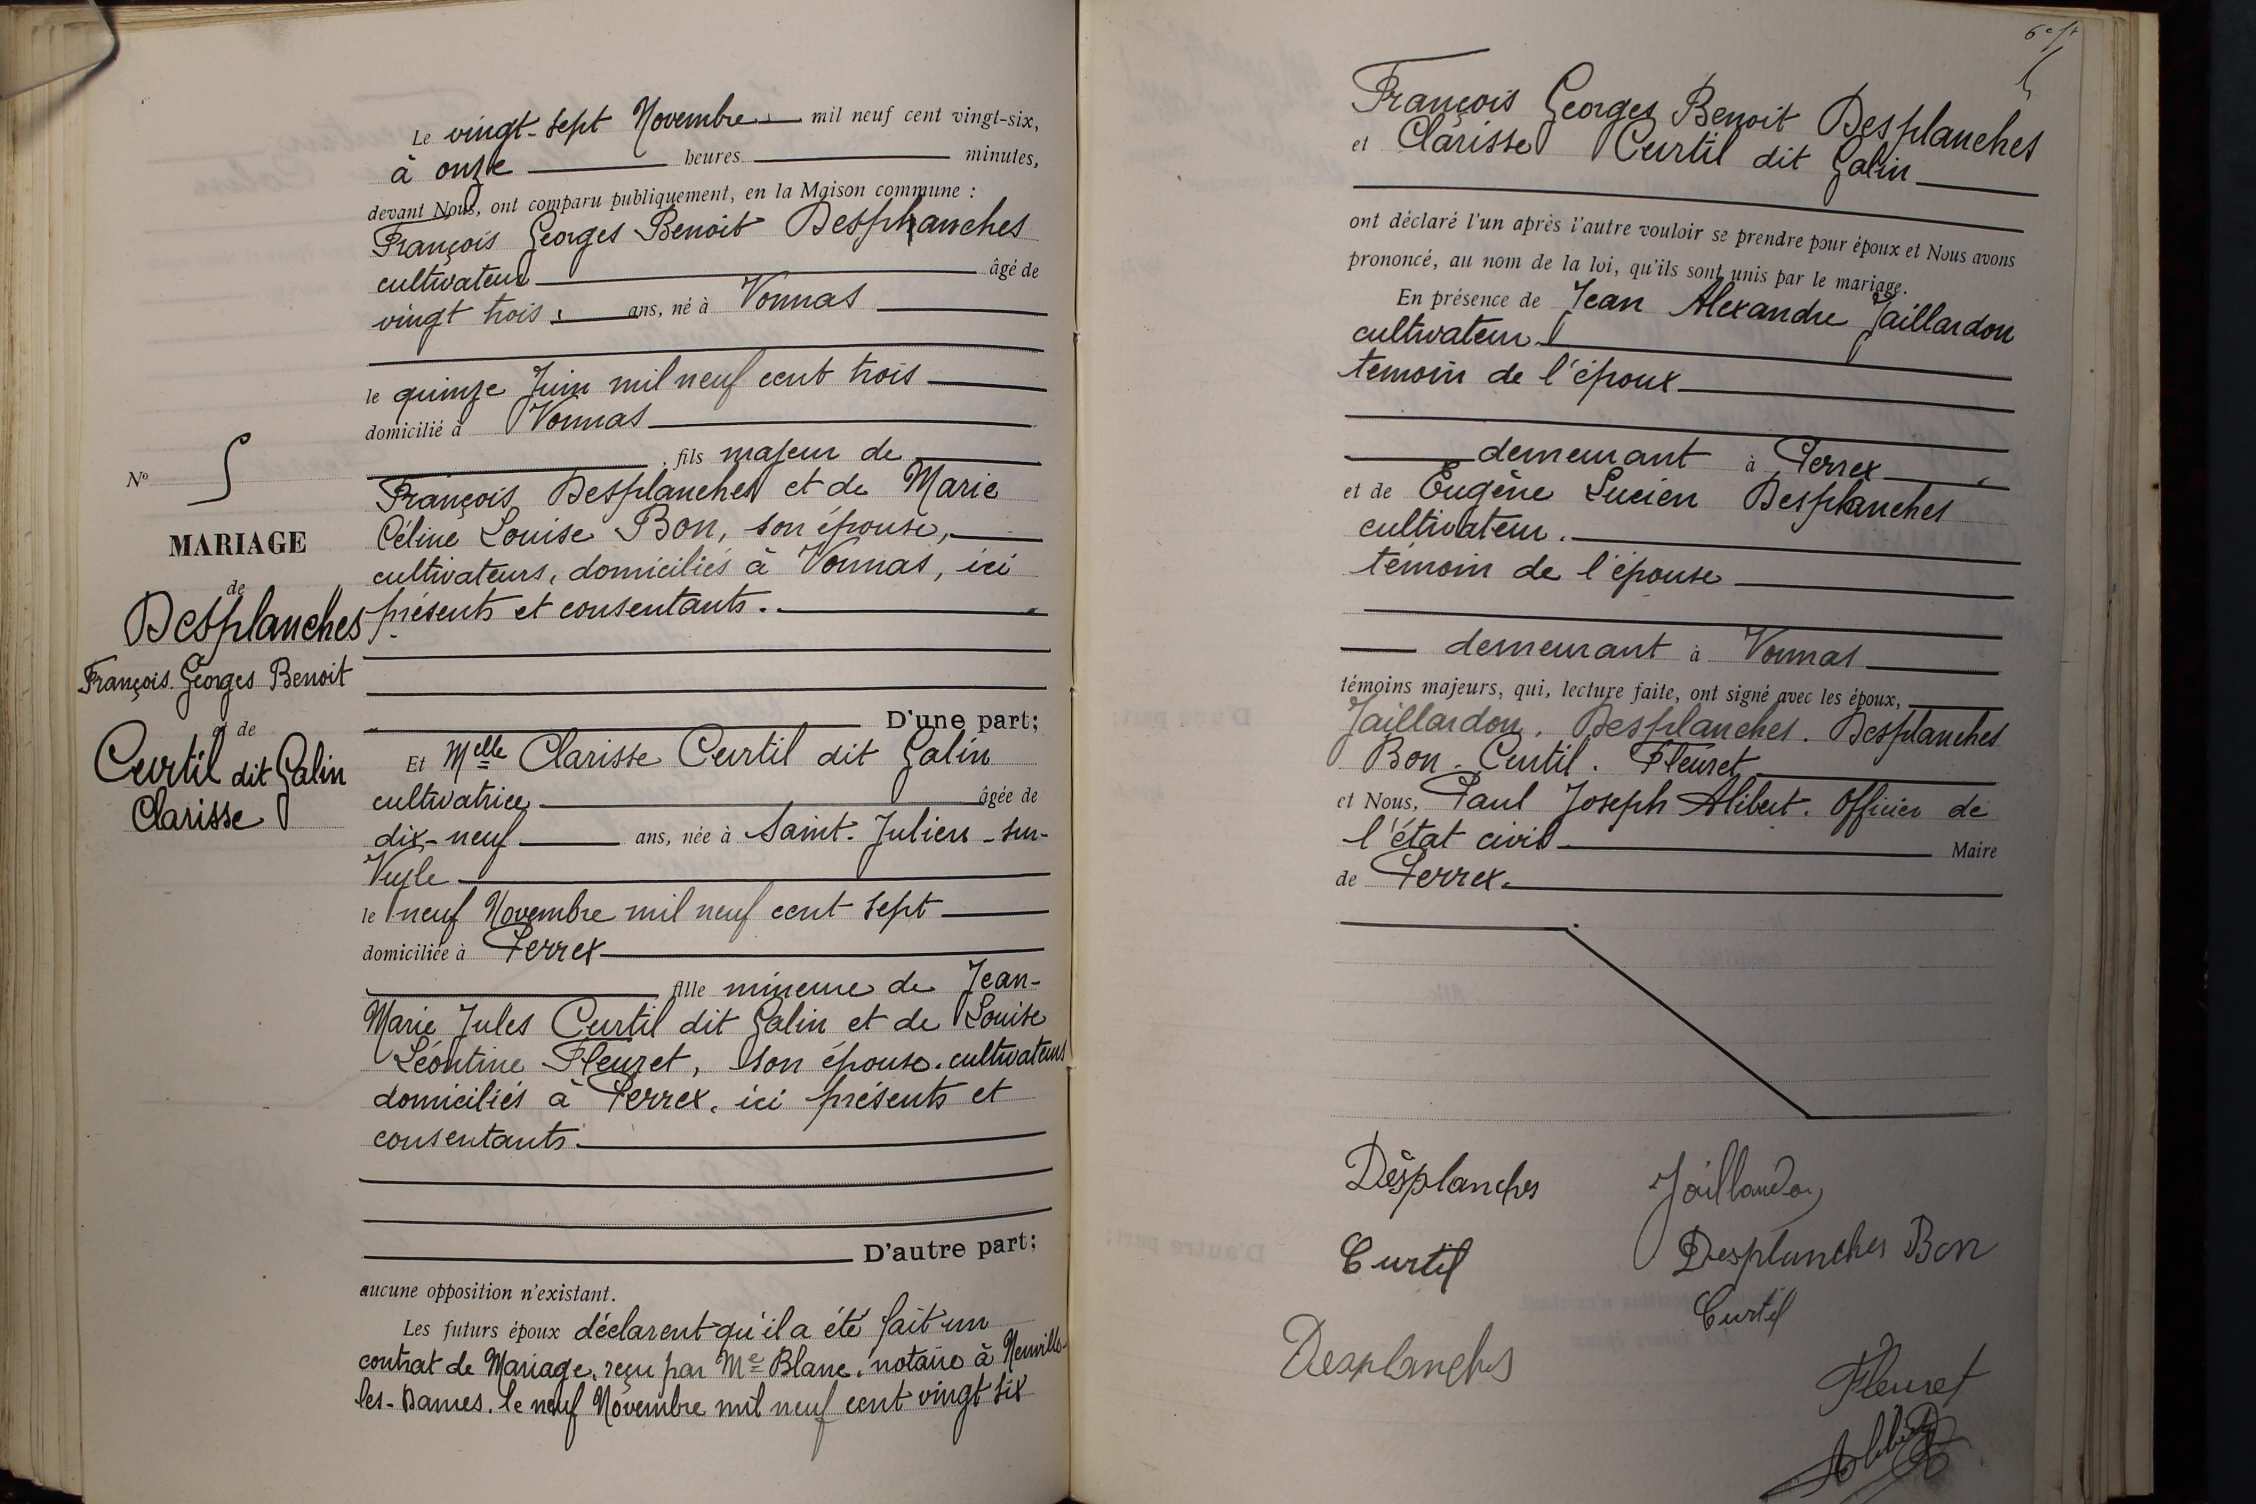 Le vingt-sept Novembre mil neuf cent vingt-six,
à onze heures minutes,
devant Nous, ont comparu publiquement, en la Maison commune :
François Georges Benoit Desplanches
cultivateur âgé de
vingt trois ans, né à Vonnas
le quinze Juin mil neuf cent trois
domicilié à Vonnas
fils majeur de
François Desplanches et de Marie
Céline Louise Bon, son épouse,
cultivateurs, domiciliés à Vonnas, ici
présents et consentants.
D'une part;
Et Melle Clarisse Curtil dit Galin
cultivatrice âgée de
dix-neuf ans, née à Saint-Julien-sur-
Veyle
le neuf Novembre mil neuf cent sept
domiciliée à Perrex
fille mineure de Jean-
Marie Jules Curtil dit Galin et de Louise
Léontine Fleuret, son épouse. cultivateurs
domiciliés à Perrex, ici présents et
consentants.
D'autre part;
aucune opposition n'existant.
Les futurs époux déclarent qu'il a été fait un
contrat de Mariage, reçu par Me Blanc, notaire à Neuville-
les-Dames, le neuf Novembre mil neuf cent vingt six
No 5
MARIAGE
de
Desplanches
François Georges Benoit
et de
Curtil dit Galin
Clarisse
François Georges Benoit Desplanches
et Clarisse Curtil dit Galin
ont déclaré l'un après l'autre vouloir se prendre pour époux et Nous avons
prononcé, au nom de la loi, qu'ils sont unis par le mariage.
En présence de Jean Alexandre Jaillardon
cultivateur
temoin de l'époux
demeurant à Perrex
et de Eugène Lucien Desplanches
cultivateur.
témoin de l'épouse
demeurant à Vonnas
témoins majeurs, qui, lecture faite, ont signé avec les époux,
Jaillardon. Desplanches. Desplanches
Bon. Curtil. Fleuret
et Nous, Paul Joseph Alibert. Officier de
l'état civil Maire
de Perrex.
Desplanches Jaillardon
Curtil Desplanches Bon
Curtil
Desplanches
Fleuret
Alibert